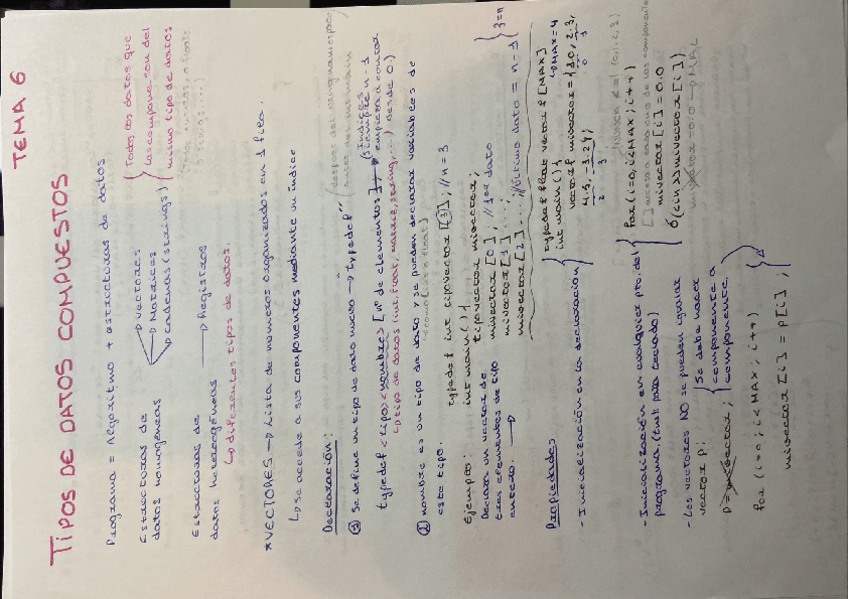 TEMA 6
TIPOS DE DATOS COMPUESTOS
Programa = Algoritmo + estructuras de datos
Estructuras de datos homogéneas
→ Vectores
→ Matrices
→ Cadenas (strings)
Todos los datos que
las componen son del
mismo tipo de datos
Estructuras de datos heterogéneas → Registros
↳ diferentes tipos de datos.
* VECTORES → Lista de números organizados en 1 fila.
↳ se accede a sus componentes mediante un índice
Declaración:
① Se define un tipo de dato nuevo → "typedef"
typedef <tipo> <nombre> [nº de elementos]
↳ tipo de datos (int, float, matriz, string, ...)
Índices
(siempre n-1
empieza a contar
desde 0)
② nombre es un tipo de dato y se pueden declarar variables de
este tipo.
typedef int tipovector [3]; // n = 3
Ejemplo:
Declara un vector de
tres elementos de tipo
entero. →
int main() {
tipovector mivector;
mivector [0]; // 1er dato
mivector [1] ...;
mivector [2] ...; // último dato = n-1
} 3=n
Propiedades
- Inicialización en la declaración
typedef float vector f [MAX]
↳ MAX=4
int main() {
vector f mivector = {1.0, 2.3,
4.3, -1.2};
- Inicialización en cualquier pto. del
programa. (

 por teclado)
for (i=0, i<MAX, i++)
mivector [i] = 0.0
ó (cin >> mivector [i])
- Los vectores NO se pueden igualar
vector p;
p = mivector;
Se debe hacer
componente a
componente
for (i=0; i<MAX; i++)
mivector [i] = p[i];